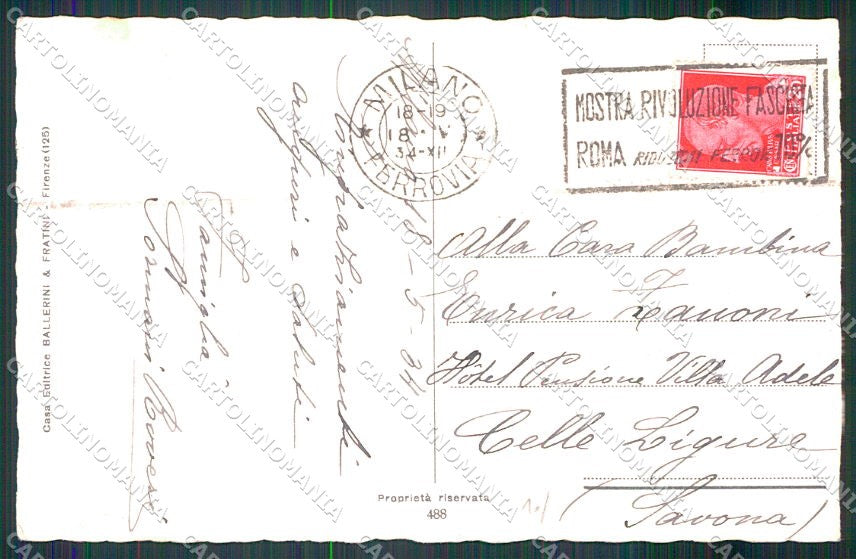 Casa Editrice BALLERINI & FRATINI - Firenze (125)
18-5-34
auguri e saluti
Famiglia
MILANO
18-19
18 · V
34-XII
FERROVIA
MOSTRA RIVOLUZIONE FASCISTA
ROMA RIDUZIONI FERROV 70%
Alla Cara Bambina
Enrica Zanoni
Hôtel Pensione Villa Adele
Celle Ligure
(Savona)
Proprietà riservata
488
CARTOLINOMANIA